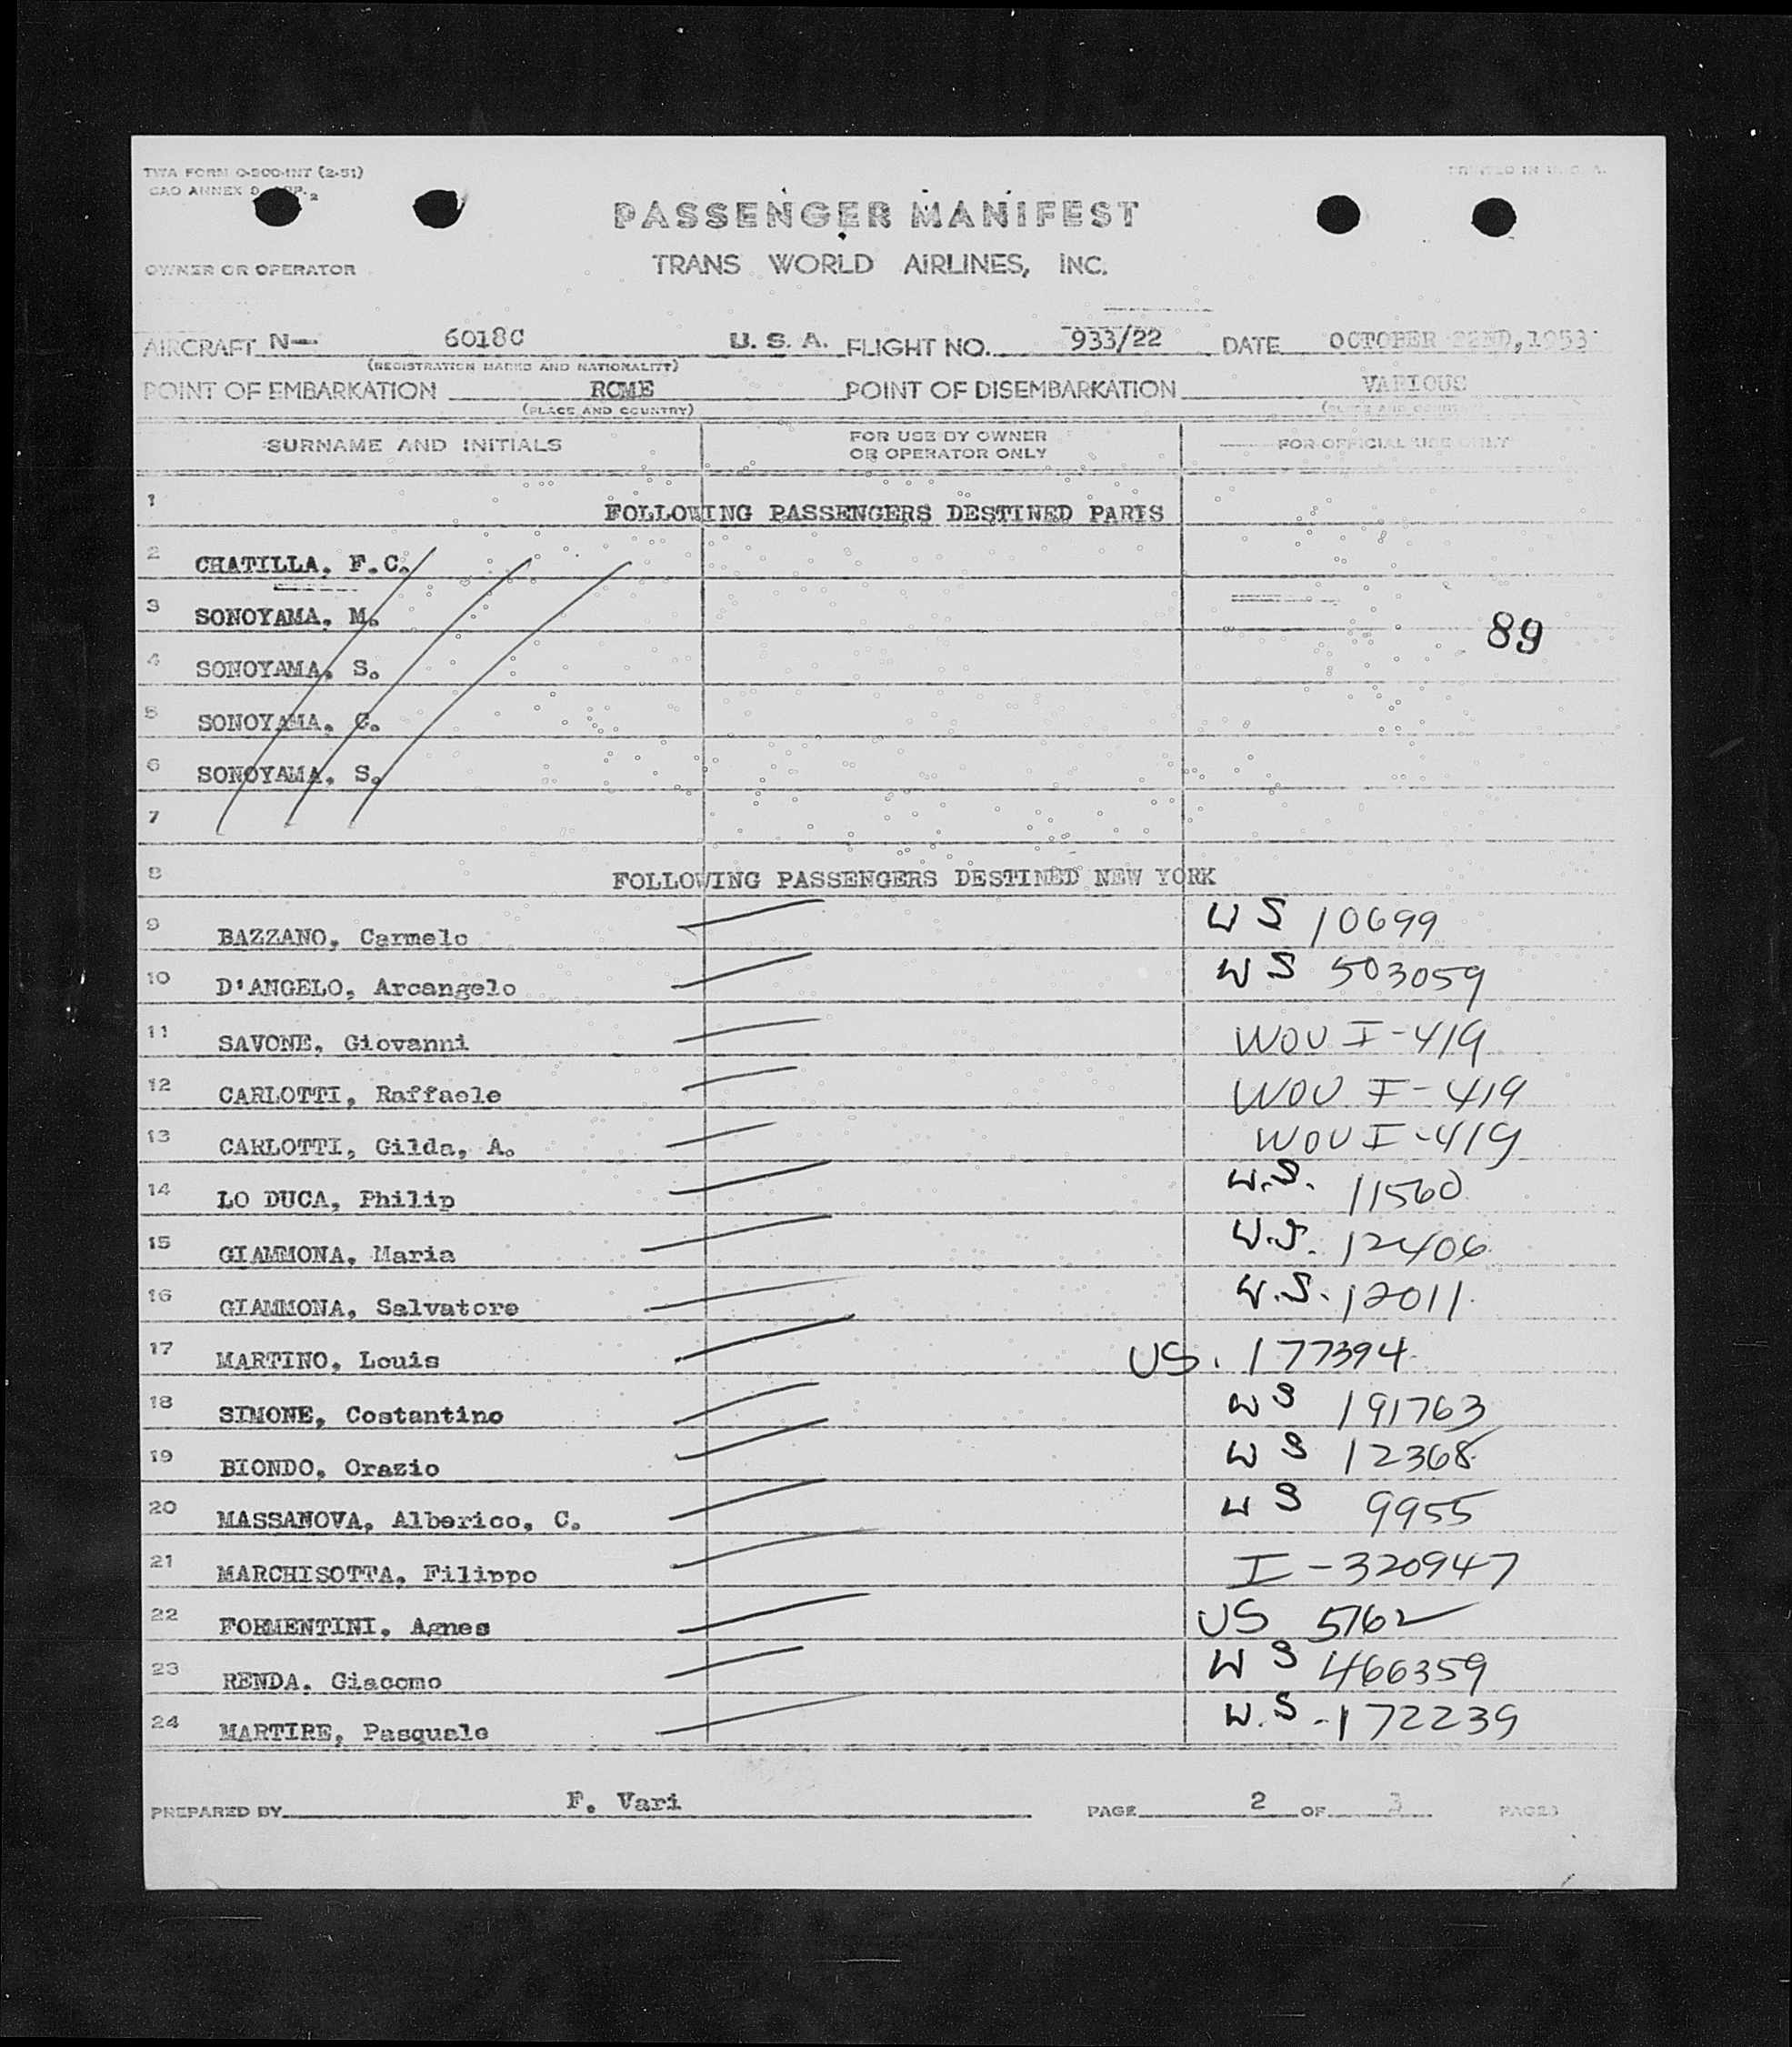 TWA FORM O-500-INT (2-51)
PRINTED IN U.S.A.
PASSENGER MANIFEST
OWNER OR OPERATOR
TRANS WORLD AIRLINES, INC.
AIRCRAFT N— 6018C U. S. A. FLIGHT NO. 933/22 DATE OCTOBER 22ND, 1953
(REGISTRATION MARKS AND NATIONALITY)
POINT OF EMBARKATION ROME POINT OF DISEMBARKATION VARIOUS
(PLACE AND COUNTRY) (PLACE AND COUNTRY)
SURNAME AND INITIALS FOR USE BY OWNER OR OPERATOR ONLY FOR OFFICIAL USE ONLY
1 FOLLOWING PASSENGERS DESTINED PARIS
2 CHATILLA, F.C.
3 SONOYAMA, M.
89
4 SONOYAMA, S.
5 SONOYAMA, C.
6 SONOYAMA, S.
7
8 FOLLOWING PASSENGERS DESTINED NEW YORK
9 BAZZANO, Carmelo US 10699
10 D'ANGELO, Arcangelo US 503059
11 SAVONE, Giovanni WOU I-419
12 CARLOTTI, Raffaele WOU I-419
13 CARLOTTI, Gilda, A. WOU I-419
14 LO DUCA, Philip U.S. 11560
15 GIAMMONA, Maria U.S. 12406
16 GIAMMONA, Salvatore U.S. 12011
17 MARTINO, Louis US. 177394
18 SIMONE, Costantino US 191763
19 BIONDO, Orazio US 12368
20 MASSANOVA, Alberico, C. US 9955
21 MARCHISOTTA, Filippo I-320947
22 FORMENTINI, Agnes US 5762
23 RENDA, Giacomo US 466359
24 MARTIRE, Pasquale U.S.-172239
PREPARED BY F. Vari PAGE 2 OF 3 PAGES